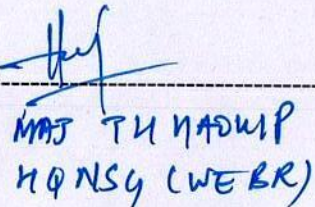 MAJ TH HAOKIP
HQ NSG (WE BR)